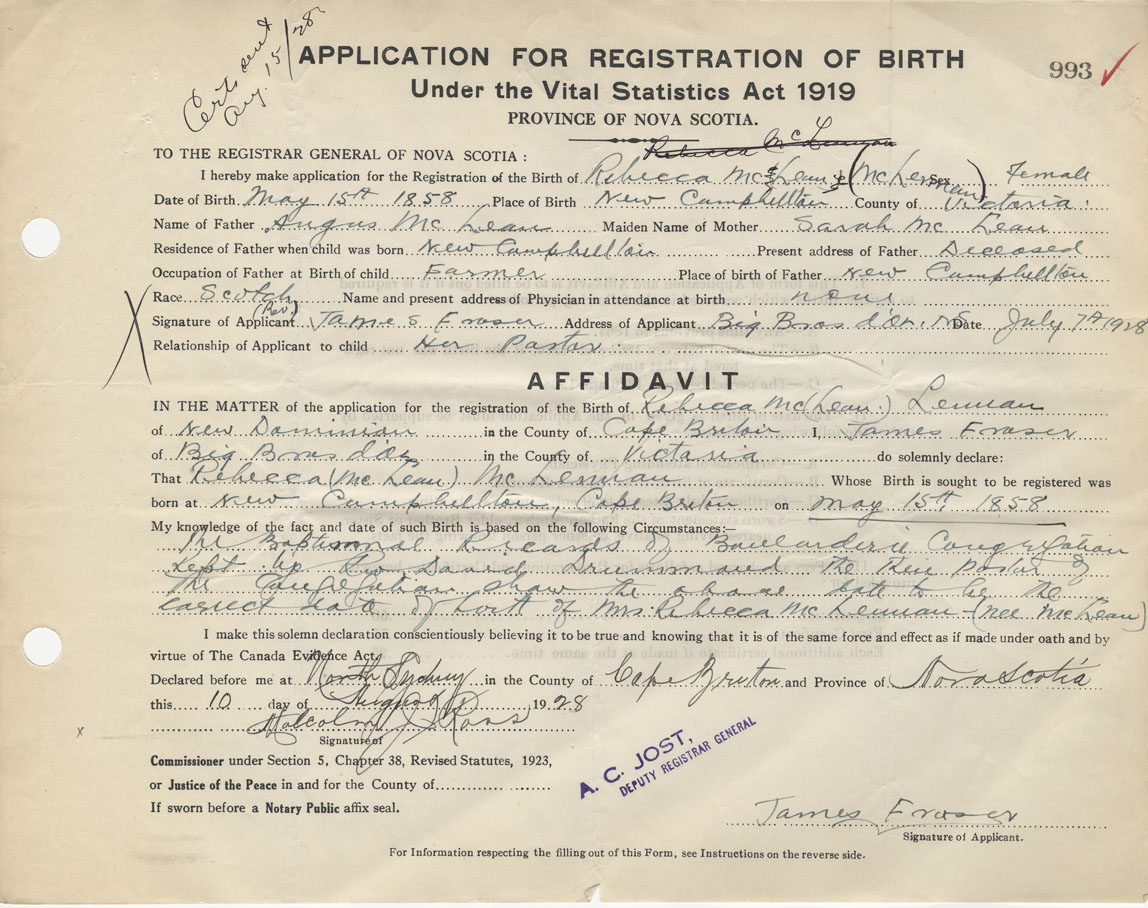 Certs sent
Aug. 15/28
APPLICATION FOR REGISTRATION OF BIRTH
993
Under the Vital Statistics Act 1919
PROVINCE OF NOVA SCOTIA.
Rebecca McLennan
TO THE REGISTRAR GENERAL OF NOVA SCOTIA :
I hereby make application for the Registration of the Birth of Rebecca McLean (McLennan) Sex Female
Date of Birth May 15th 1858 Place of Birth New Campbellton County of Victoria
Name of Father Angus McLean Maiden Name of Mother Sarah McLean
Residence of Father when child was born New Campbellton Present address of Father Deceased
Occupation of Father at Birth of child Farmer Place of birth of Father New Campbellton
Race Scotch Name and present address of Physician in attendance at birth none
Signature of Applicant (Rev.) James Fraser Address of Applicant Big Bras d'Or. N.S. Date July 7th 1928
Relationship of Applicant to child Her Pastor.
AFFIDAVIT
IN THE MATTER of the application for the registration of the Birth of Rebecca Mc(Lean) Lennan
of New Dominion in the County of Cape Breton I, James Fraser
of Big Bras d'Or in the County of Victoria do solemnly declare:
That Rebecca (McLean) McLennan Whose Birth is sought to be registered was
born at New Campbellton, Cape Breton on May 15th 1858
My knowledge of the fact and date of such Birth is based on the following Circumstances:—
The Baptismal Records of Boularderie Congregation
kept by Drummond the then Pastor of
the Congregation show the above date to be the
correct date of birth of Mrs. Rebecca McLennan (nee McLean)
I make this solemn declaration conscientiously believing it to be true and knowing that it is of the same force and effect as if made under oath and by
virtue of The Canada Evidence Act,
Declared before me at North Sydney in the County of Cape Breton and Province of Nova Scotia
this 10 day of August 1928
Malcolm J. Ross
Signature of
Commissioner under Section 5, Chapter 38, Revised Statutes, 1923,
or Justice of the Peace in and for the County of
If sworn before a Notary Public affix seal.
A. C. JOST,
DEPUTY REGISTRAR GENERAL
James Fraser
Signature of Applicant.
For Information respecting the filling out of this Form, see Instructions on the reverse side.